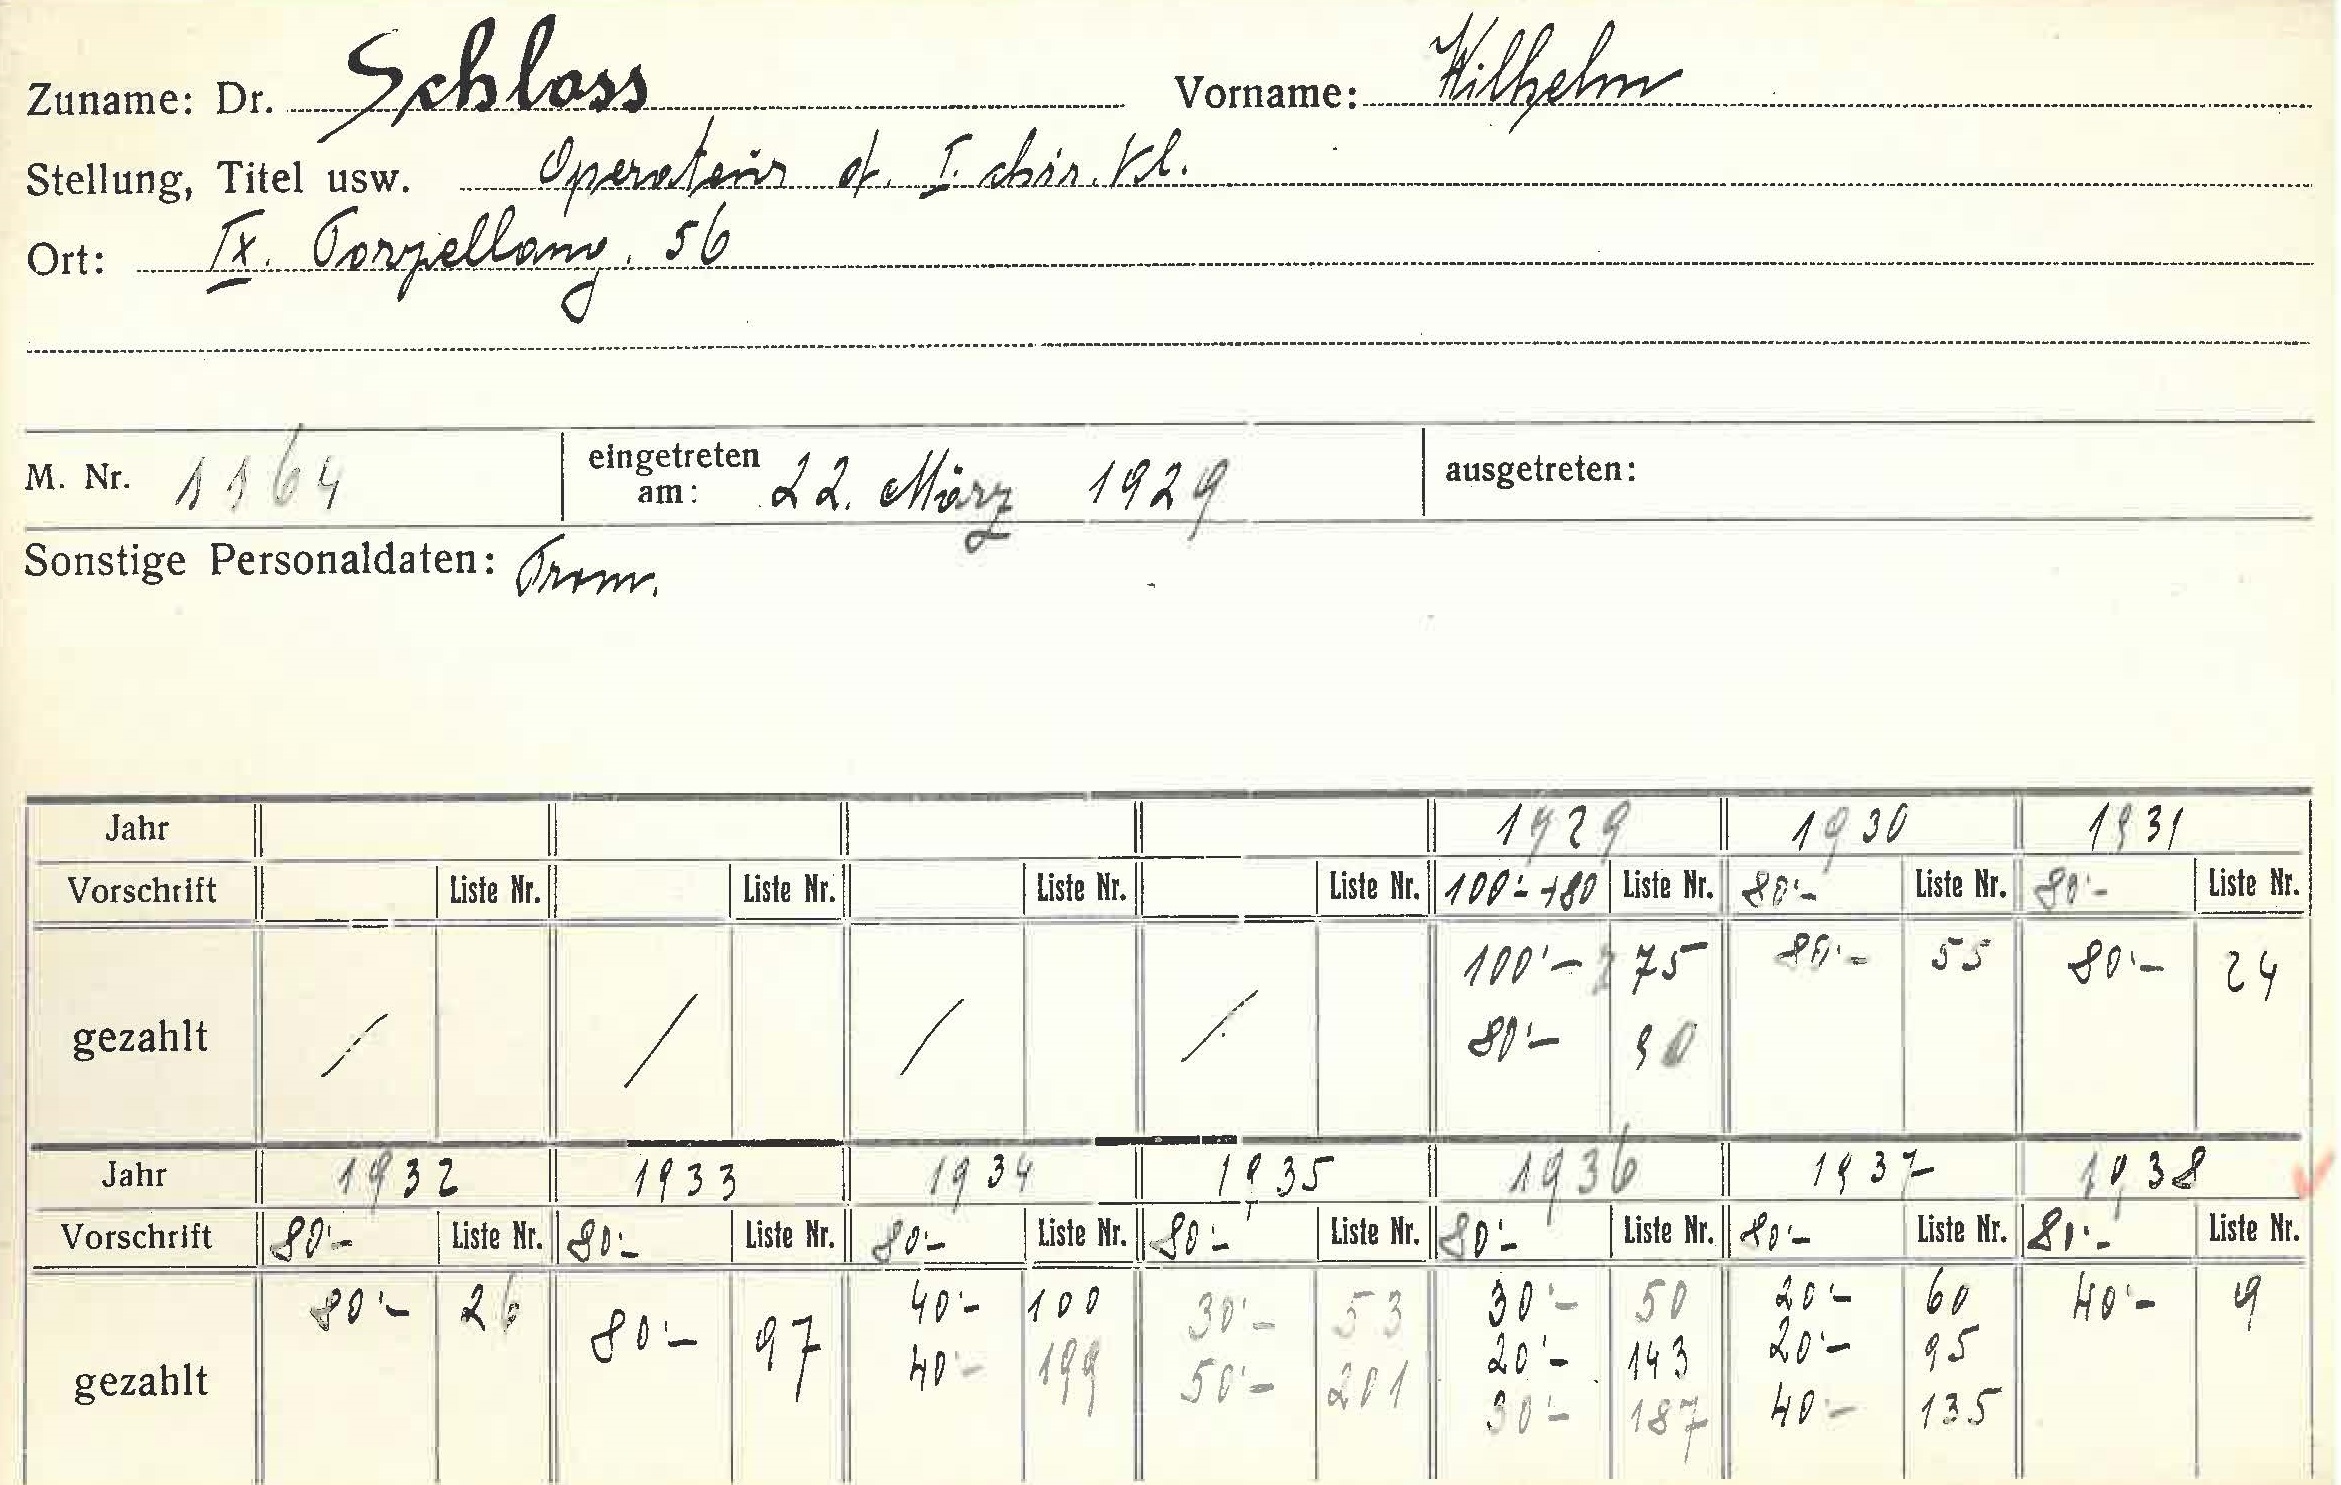 Zuname: Dr. Schloss Vorname: Wilhelm
Stellung, Titel usw. Operateur d. I. chir. Kl.
Ort: IX. Porzellang. 56
M. Nr. 1164 eingetreten am: 22. März 1929 ausgetreten:
Sonstige Personaldaten: Prom.
Jahr 1929 1930 1931
Vorschrift Liste Nr. Liste Nr. Liste Nr. Liste Nr. 100'- +80 Liste Nr. 80'- Liste Nr. 80'- Liste Nr.
100'- 75 80'- 55 80'- 24
gezahlt / / / / 80'- 90
Jahr 1932 1933 1934 1935 1936 1937 1938
Vorschrift 80'- Liste Nr. 80'- Liste Nr. 80'- Liste Nr. 80'- Liste Nr. 80'- Liste Nr. 80'- Liste Nr. 80'- Liste Nr.
80'- 26 80'- 97 40'- 100 30'- 53 30'- 50 20'- 60 40'- 9
gezahlt 40'- 199 50'- 201 20'- 143 20'- 95
30'- 187 40'- 135